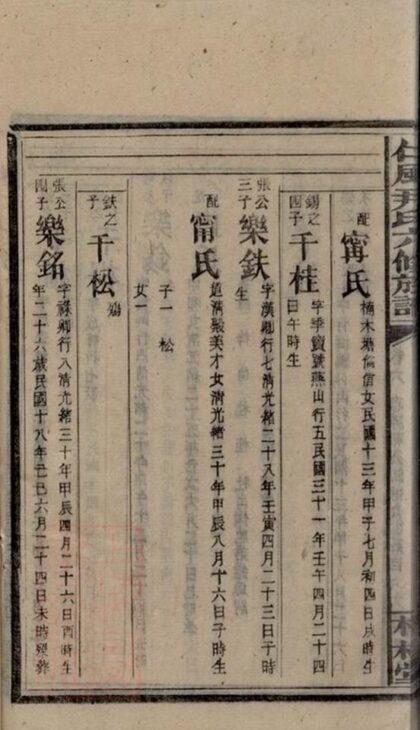 仁風尹氏六修族譜
配
甯氏
楠木塘倫信女民國十三年甲子七月初四日戌時生
錫之
四子
千桂
字季質號燕山行五民國三十一年壬午四月二十四
日午時生
張公
三子
樂鉄
字漢卿行七清光緒二十八年壬寅四月二十三日子時
生
配
甯氏
美才女清光緒三十年甲辰八月十六日子時生
子一 松
女一
鉄之
子
千松
殤
張公
四子
樂銘
字祿卿行八清光緒三十年甲辰四月二十六日酉時生
年二十六歲民國十八年己巳六月二十四日未時歿葬